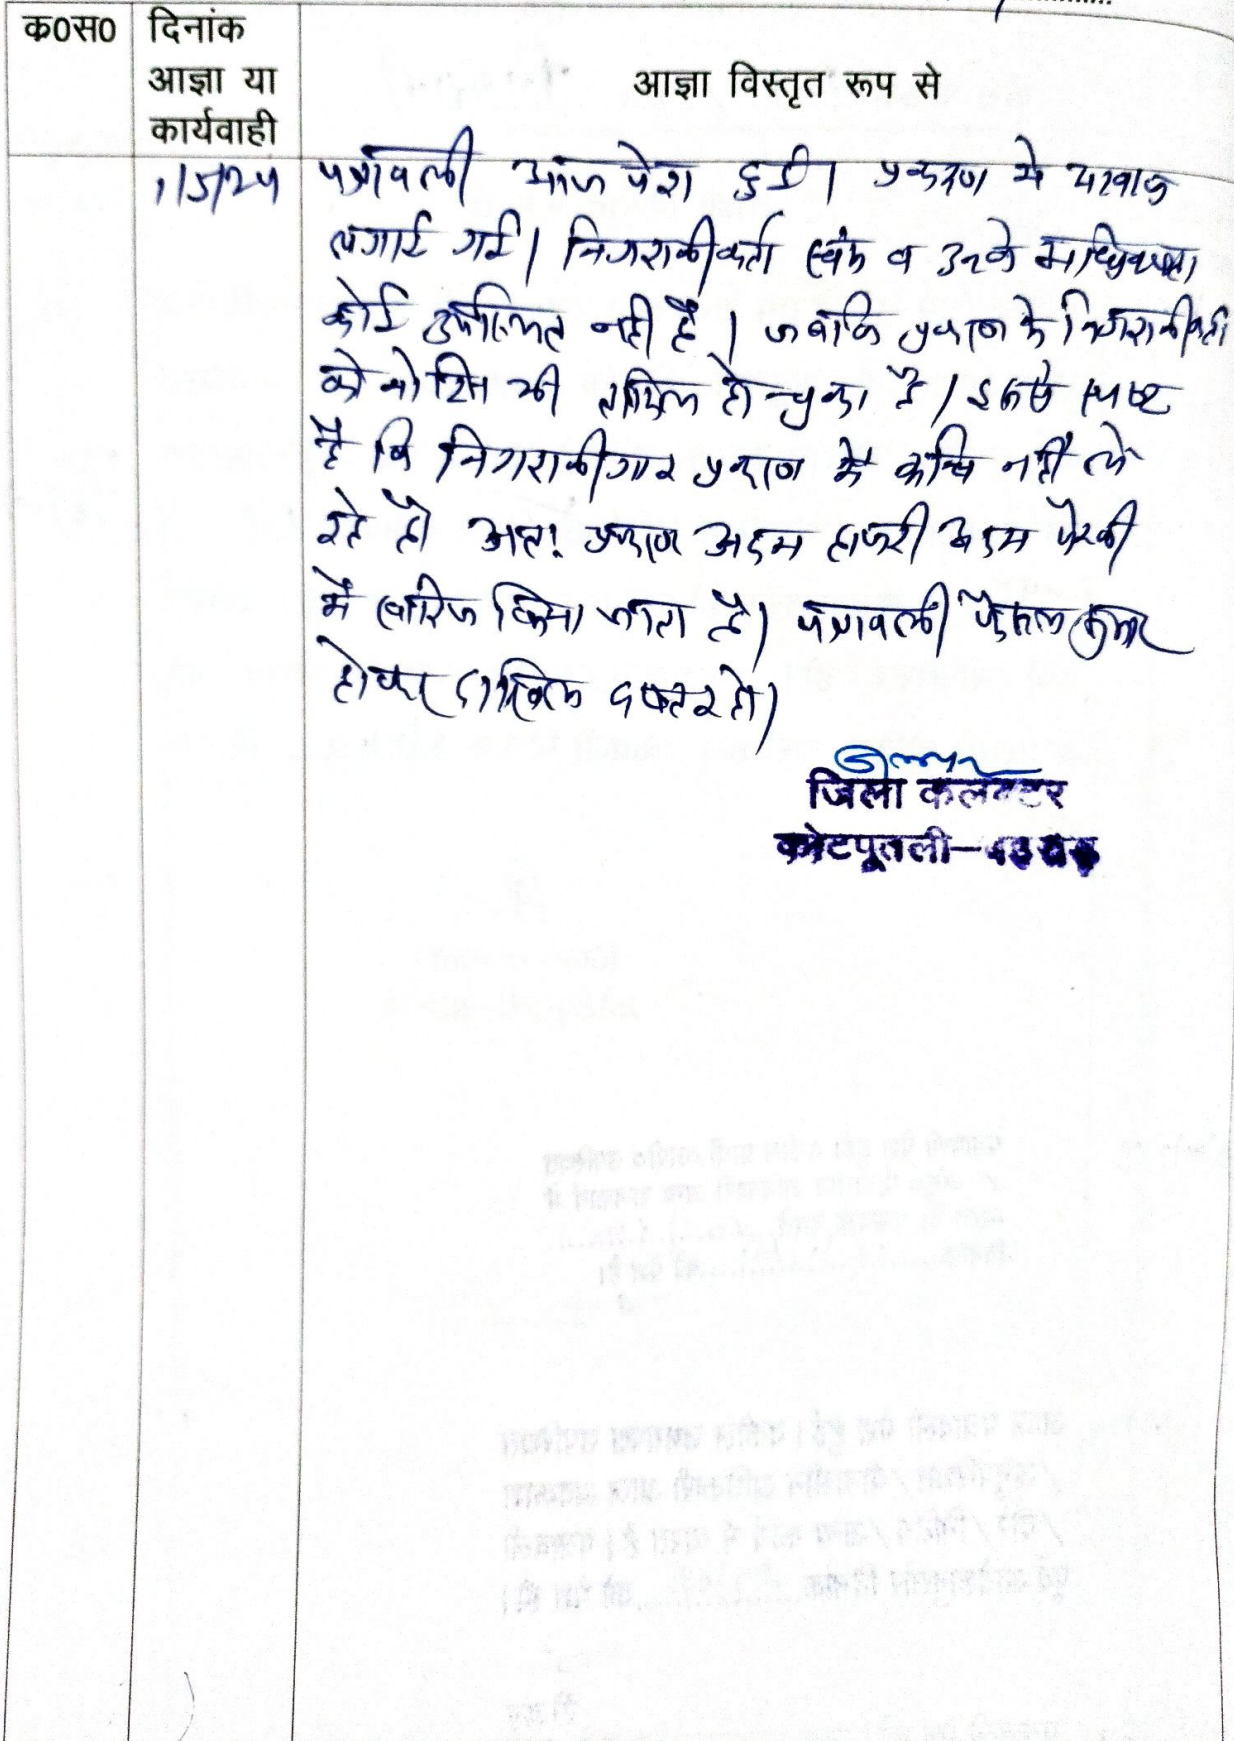 क0स0
दिनांक
आज्ञा या
कार्यवाही
आज्ञा विस्तृत रूप से
पत्रावली आज पेश हुई। प्रकरण में आवाज
लगाई गई। निगरानीकर्ता स्वंय व उनके अधिवक्ता
कोई उपस्थित नहीं है। जबकि प्रकरण के निगरानीकर्ता
को नोटिस की तामिल हो चुका है। इससे स्पष्ट
है कि निगरानीगार प्रकरण में रूचि नहीं ले
रहे है। अतः प्रकरण अदम हाजरी अदम पैरवी
में खारिज किया जाता है। पत्रावली फैसल शुमार
होकर दाखिल दफ्तर हो।
जिला कलेक्टर
कोटपूतली-